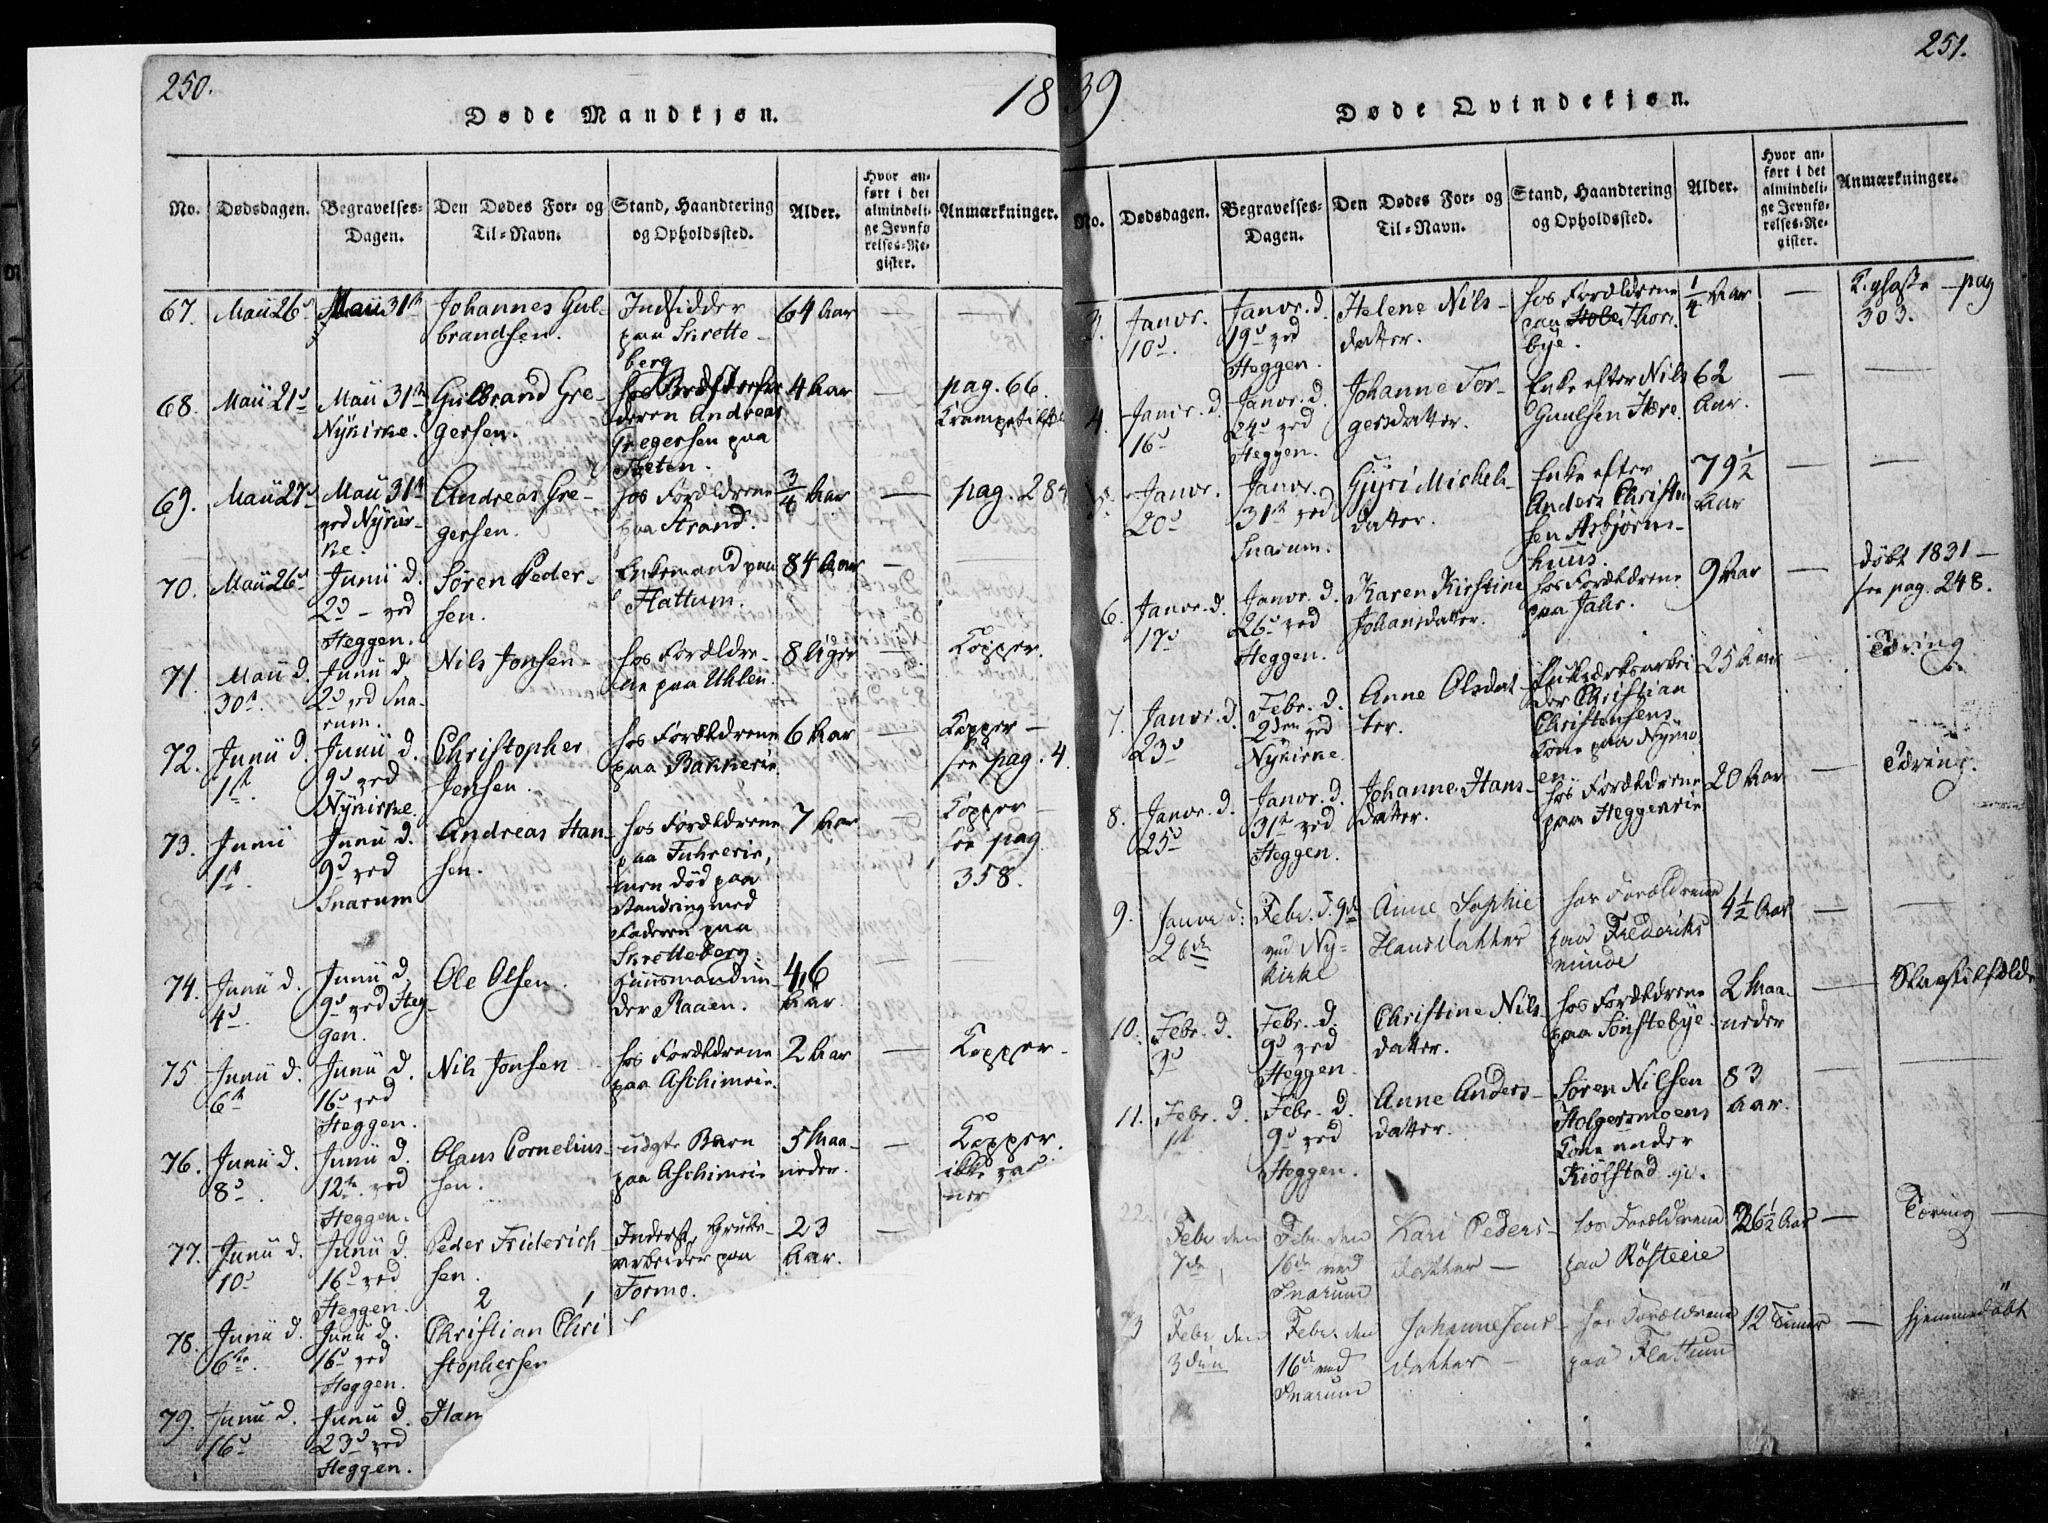 250.
18
Døde Mandkjøn.
No.
Dødsdagen.
Begravelses-
Dagen.
Den Dødes For- og
Til-Navn.
Stand, Haandtering
og Opholdssted.
Alder.
Hvor an-
ført i det
almindeli-
ge Jevnfø
relses-Re-
gister.
Anmærkninger.
67.
Maii 26
Maii 31
Johannes Gul-
brandsen.
Indsidder
paa Skrette-
berg
64 Aar
68.
Maii 21
Maii 31
Nykirke.
Gulbrand Gre-
gersen.
deren Andreas
Gregersen paa
4 Aar
pag. 66.
69.
Maii 27
Maii 31
ved Nykir-
ke.
Andreas Gre-
gersen.
hos Forældrene
paa Strand.
3/4 Aar
pag. 284
70.
Maii 26
Junii d.
2 - ved
Heggen.
Søren Peder-
sen.
Enkemand paa
Flattum.
84 Aar
71.
Maii d.
30
Junii d.
2 ved Sna-
rum.
Nils Jonsen
hos Forældre-
ne paa Uhlen.
8 Uger
Kopper.
72.
Junii d.
1
Junii d.
9 ved
Nykirke.
Christopher
Jensen.
hos Forældrene
paa Bakkerie
6 Aar
Kopper -
see pag. 4.
73.
Junii
1
Junii d.
9 ved
Snarum
Andreas Han-
sen.
hos Forældrene
paa
men død paa
Vandring med
Faderen paa
Skretteberg.
7 Aar
Kopper -
see pag
358.
74.
Junii d.
4
Junii d.
9 ved Heg-
gen.
Ole Olsen.
Huusmand un-
der Raaen.
46
Aar.
75
Junii d.
6
Junii d.
16 ved
Heggen.
Nils Jonsen
hos Forældrene
paa Aschimeie.
2 Aar
Kopper.
76.
Junii d.
8
Junii d.
12 ved
Heggen.
Olaus Cornelius-
sen.
uægte Barn
paa Aschimeie
5 Maa-
neder.
Kopper.
ikke vac
ner
77.
Junii d.
10
Junii d.
16 ved
Heggen.
Peder Friderich-
sen.
Inderst, Grube-
arbeider paa
Formo.
23
Aar.
78.
Junii d.
6
Junii d.
16 ved
Heggen.
2 1
Christian Chri
stophersen
79.
Junii d.
16
Junii d.
23 ved
Heggen.
Han
39
251.
Døde Qvindekjøn.
No.
Dødsdagen.
Begravelses-
Dagen.
Den Dødes For- og
Til-Navn.
Stand, Haandtering
og Opholdssted.
Alder.
Hvor an-
ført i det
almindeli-
ge Jevnfø-
relses-Re-
gister.
Anmærkninger.
3.
Janvr.
10
Janvr. d.
19 ved
Heggen.
Helene Nils-
datter.
hos Forældrene
paa Thor-
bye.
1/4 Aar
pag
303.
4.
Janvr. d.
16
Janvr. d.
24 ved
Heggen.
Johanne Tor-
gersdatter.
Enke efter Nils
Gaulsen Here.
62
Aar.
5.
Janvr.
20
Janvr.
31 ved
Snarum.
Gjyri Michels-
datter.
Enke efter
Anders Christen-
sen Asbjørns-
huus.
79 1/2
Aar
6.
Janvr. d.
17
Janvr. d.
26 ved
Heggen.
Karen Kirstine
Johansdatter.
hos Forældrene
paa Jahr.
9 Aar
døbt 1831 -
see pag. 248.
7.
Janvr. d.
23
Febr. d.
2den ved
Nykirke.
Anne Olsdat-
ter.
der Christian
Christensens
Kone paa Nymo-
en.
25 Aar
Tæring
8.
Janvr. d.
25
Janvr. d.
31 ved
Heggen.
Johanne Hans-
datter.
hos Forældrene
paa Heggeneie
20 Aar
Tæring.
9.
Janvr d:
26de
Febr. d. 9de
ved Ny-
kirke
Anne Sophie
Hansdatter
hos Forældrene
paa Frederiks
minde
4 1/2 Aar
10.
Febr. d.
3
Febr. d.
9 ved
Heggen.
Christine Nils-
datter.
hos Forældrene
paa Sønstebye.
2 Maa-
neder
Slagtilfælde
11.
Febr. d.
1
Febr. d.
9 ved
Heggen.
Anne Anders-
datter.
Søren Nilsen
Holgersmoens
Kone under
Kiølstad
83
Aar.
22.
Febr den
7de
Febr. den
16de ved
Snarum
Kari Peders-
datter -
hos Forældrene
paa Røsteeie
26 1/2 Aar
Tæring
Febr den
3die
Febr. den
16de ved
Snarum
Johanne Jens-
datter -
hos Forældrene
paa Flattum
12 Timer
hjemmedøbt